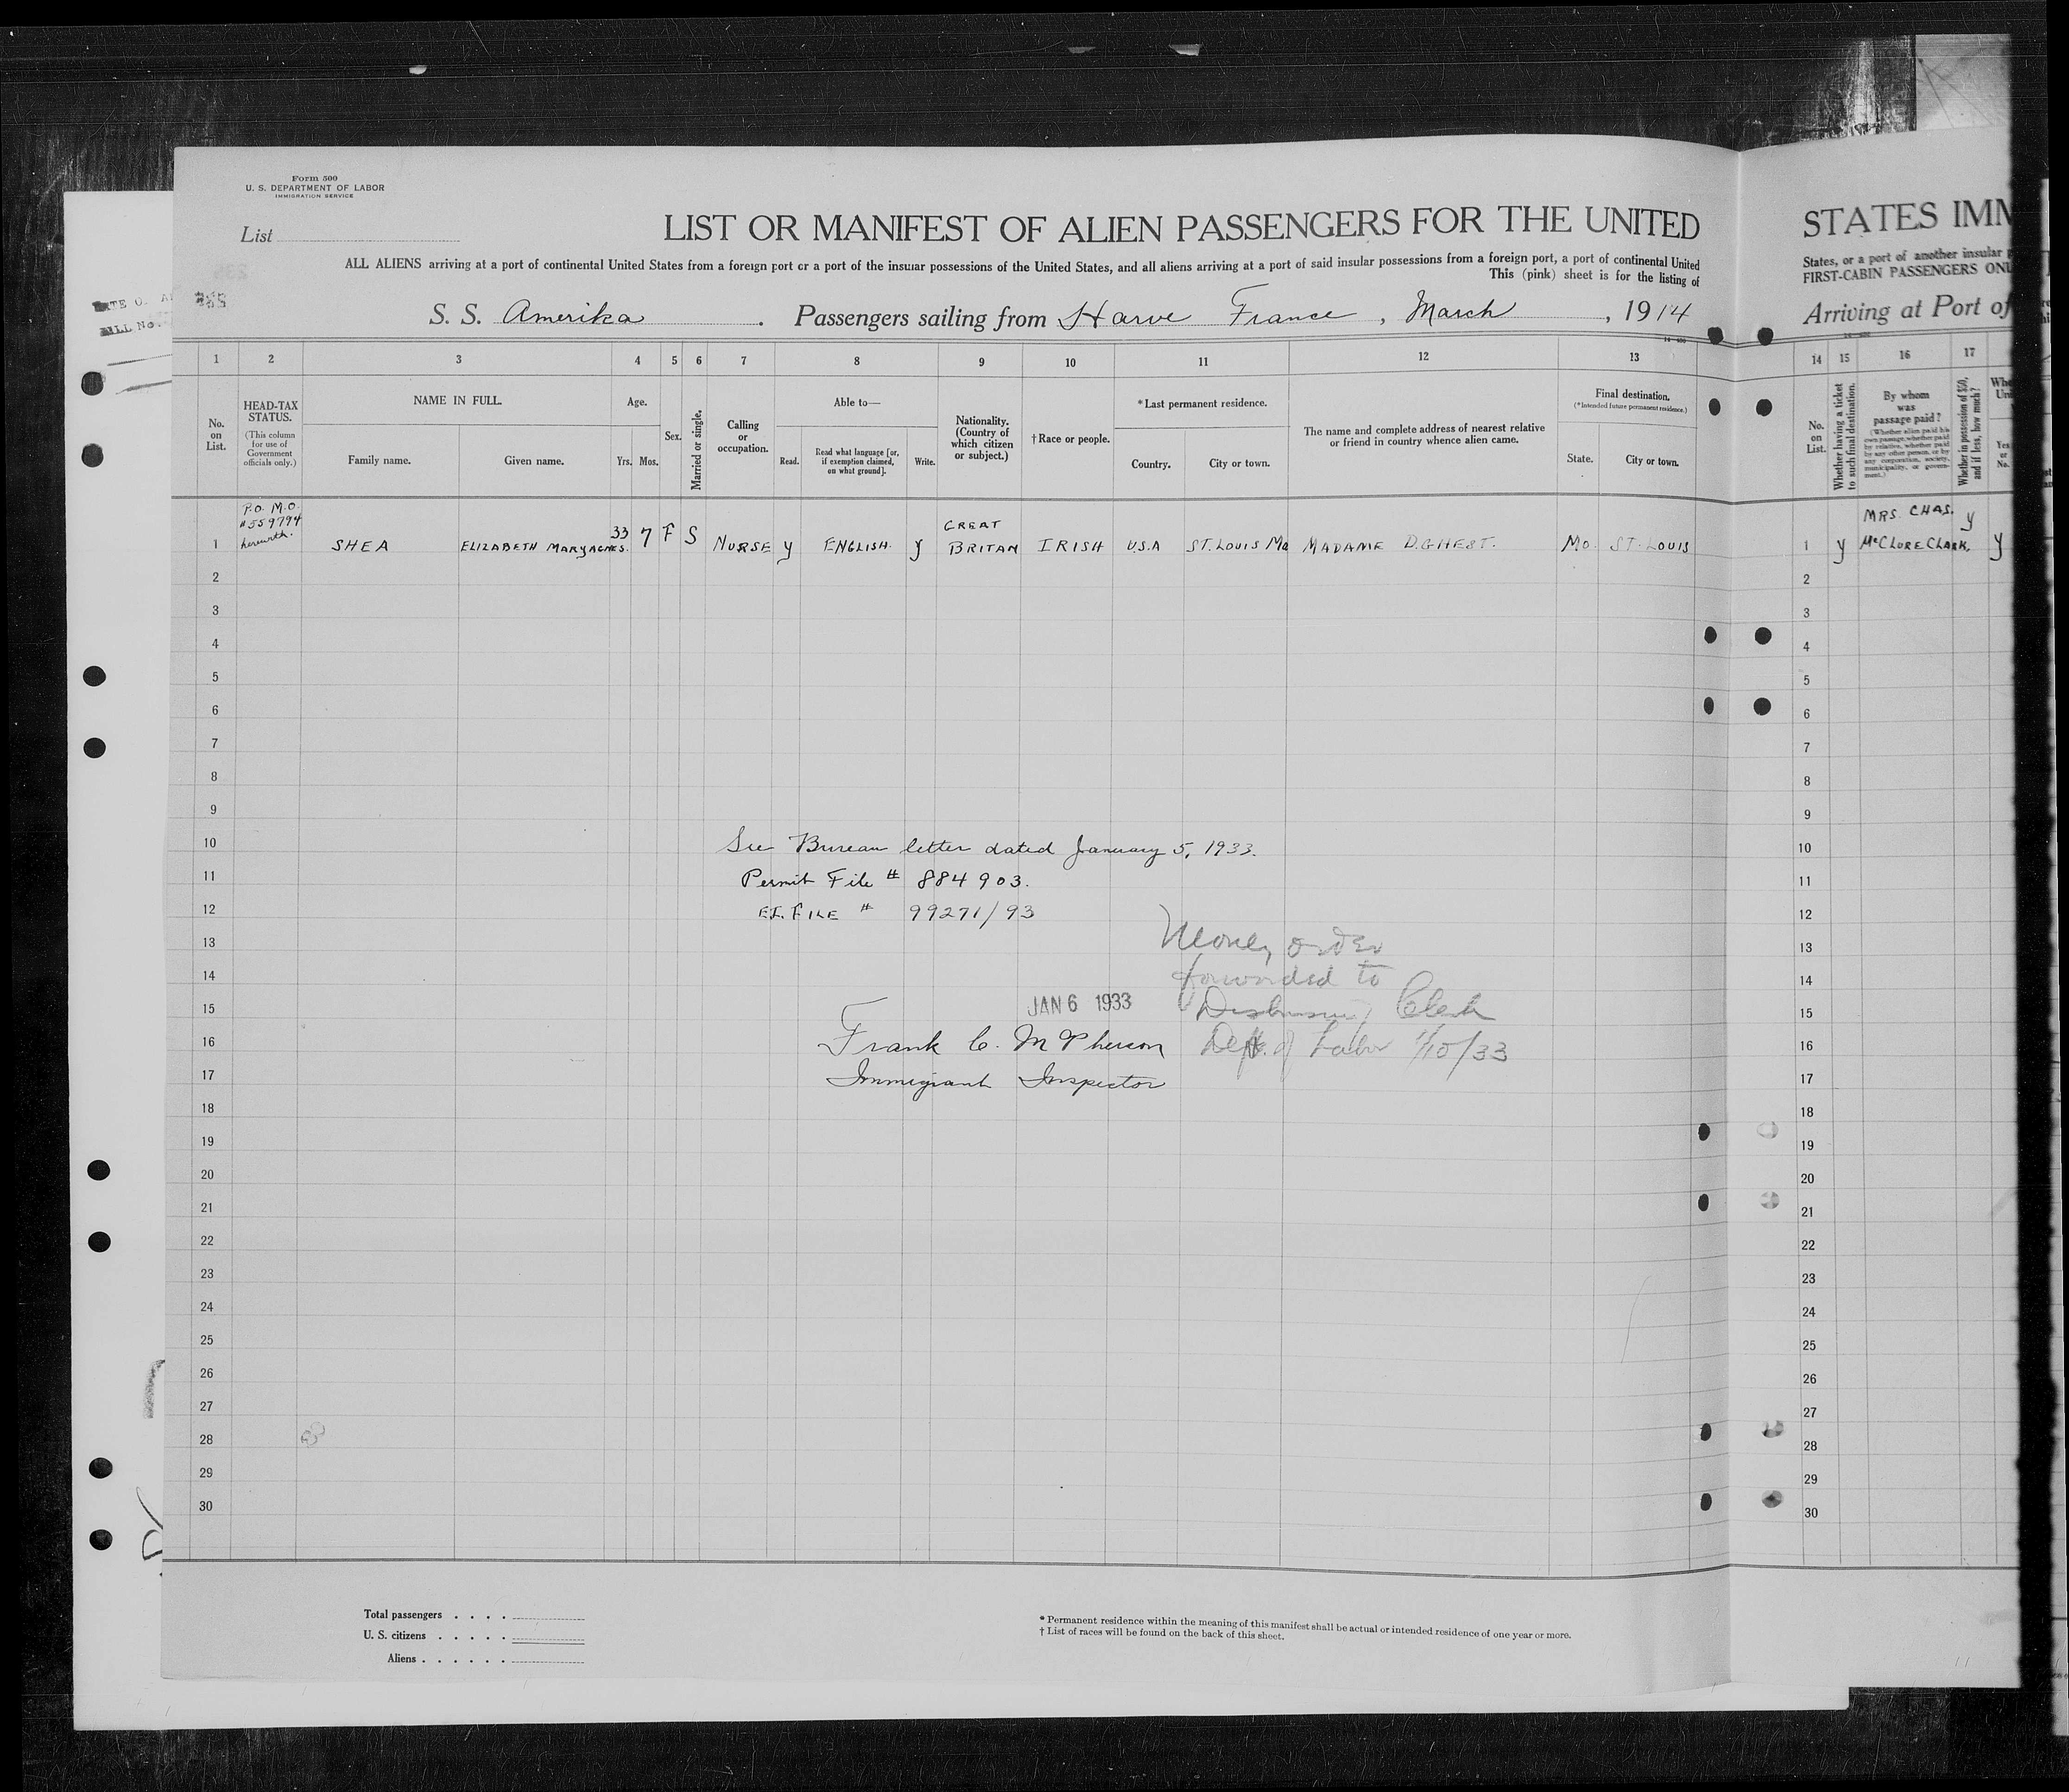 Form 500
U. S. DEPARTMENT OF LABOR
IMMIGRATION SERVICE
List
LIST OR MANIFEST OF ALIEN PASSENGERS FOR THE UNITED
ALL ALIENS arriving at a port of continental United States from a foreign port or a port of the insular possessions of the United States, and all aliens arriving at a port of said insular possessions from a foreign port, a port of continental United
This (pink) sheet is for the listing of
S. S. Amerika. Passengers sailing from Harve France, March, 1914
1 2 3 4 5 6 7 8 9 10 11 12 13
No. on List.
HEAD-TAX STATUS.
(This column for use of Government officials only.)
NAME IN FULL.
Family name.
Given name.
Age.
Yrs. Mos.
Sex.
Married or single.
Calling or occupation.
Able to—
Read.
Read what language [or, if exemption claimed, on what ground].
Write.
Nationality. (Country of which citizen or subject.)
†Race or people.
*Last permanent residence.
Country.
City or town.
The name and complete address of nearest relative or friend in country whence alien came.
Final destination.
(*Intended future permanent residence.)
State.
City or town.
P.O. M.O.
#559794
herewith.
1 SHEA ELIZABETH MARY AGNES. 33 7 F S NURSE y ENGLISH. y GREAT BRITAN IRISH U.S.A ST. LOUIS MO MADAME D.GHEST. MO. ST. LOUIS
2
3
4
5
6
7
8
9
10
11
12
13
14
15
16
17
18
19
20
21
22
23
24
25
26
27
28
29
30
See Bureau letter dated January 5, 1933.
Permit File # 884903.
E.I. FILE # 99271/93
Money order
forwarded to
Disbursing Clerk
Dept. of Labor 1/10/33
JAN 6 1933
Frank C. McPherson
Immigrant Inspector
Total passengers
U. S. citizens
Aliens
* Permanent residence within the meaning of this manifest shall be actual or intended residence of one year or more.
† List of races will be found on the back of this sheet.
STATES IMM
States, or a port of another insular
FIRST-CABIN PASSENGERS ONL
Arriving at Port of
14 15 16 17
No. on List.
Whether having a ticket to such final destination.
By whom was passage paid?
(Whether alien paid his own passage, whether paid by relative, whether paid by any other person, or by any corporation, society, municipality, or government.)
Whether in possession of $50, and if less, how much?
Yes or No.
1 y MRS. CHAS. McCLURE CLARK. y y
2
3
4
5
6
7
8
9
10
11
12
13
14
15
16
17
18
19
20
21
22
23
24
25
26
27
28
29
30